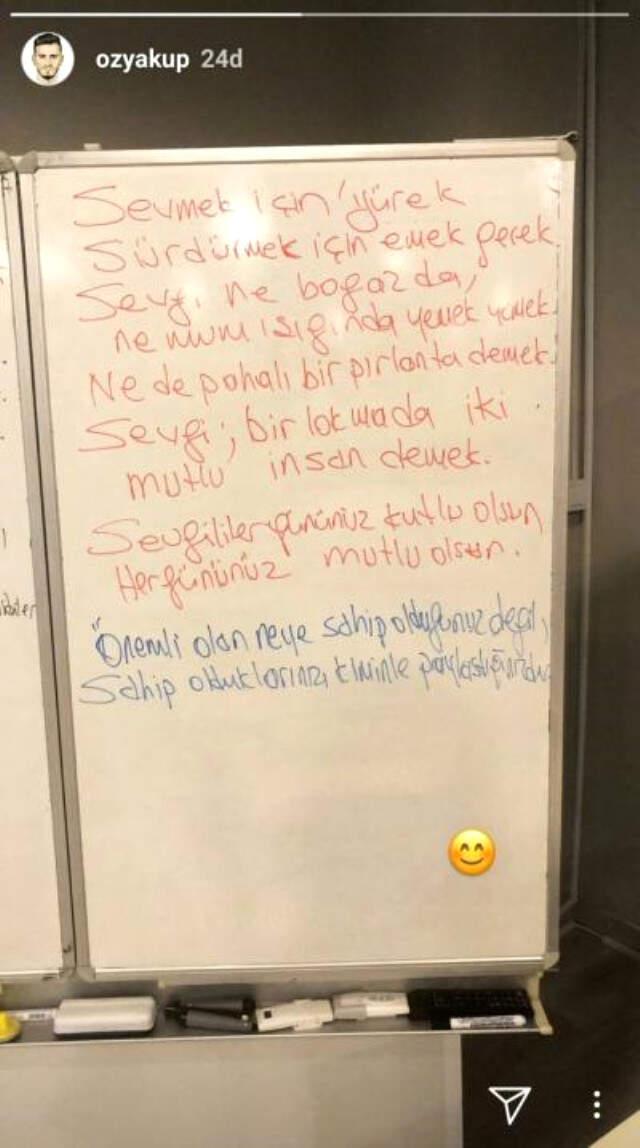 ozyakup 24d
Sevmek için yürek
Sürdürmek için emek gerek.
Sevgi ne boğazda,
ne mum ışığında yemek yemek.
Ne de pahalı bir pırlanta demek.
Sevgi; bir lokmada iki
mutlu insan demek.
Sevgililer gününüz kutlu olsun
Her gününüz mutlu olsun.
"Önemli olan neye sahip olduğunuz değil,
Sahip olduklarınızı kiminle paylaştığınızdır.